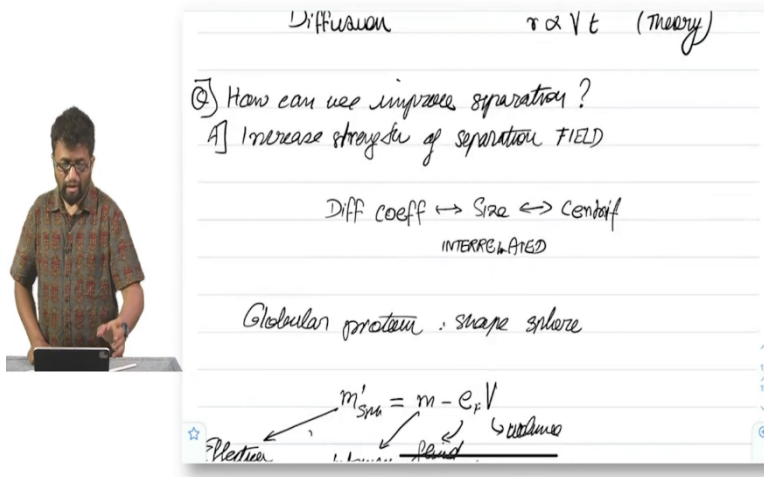 Diffusion r ∝ √t (Theory)
Q] How can we improve separation?
A] Increase strength of separation FIELD
Diff coeff ↔ Size ↔ Centrif
INTERRELATED
Globular protein : shape sphere
m'sph = m - ρF V
Effective fluid volume